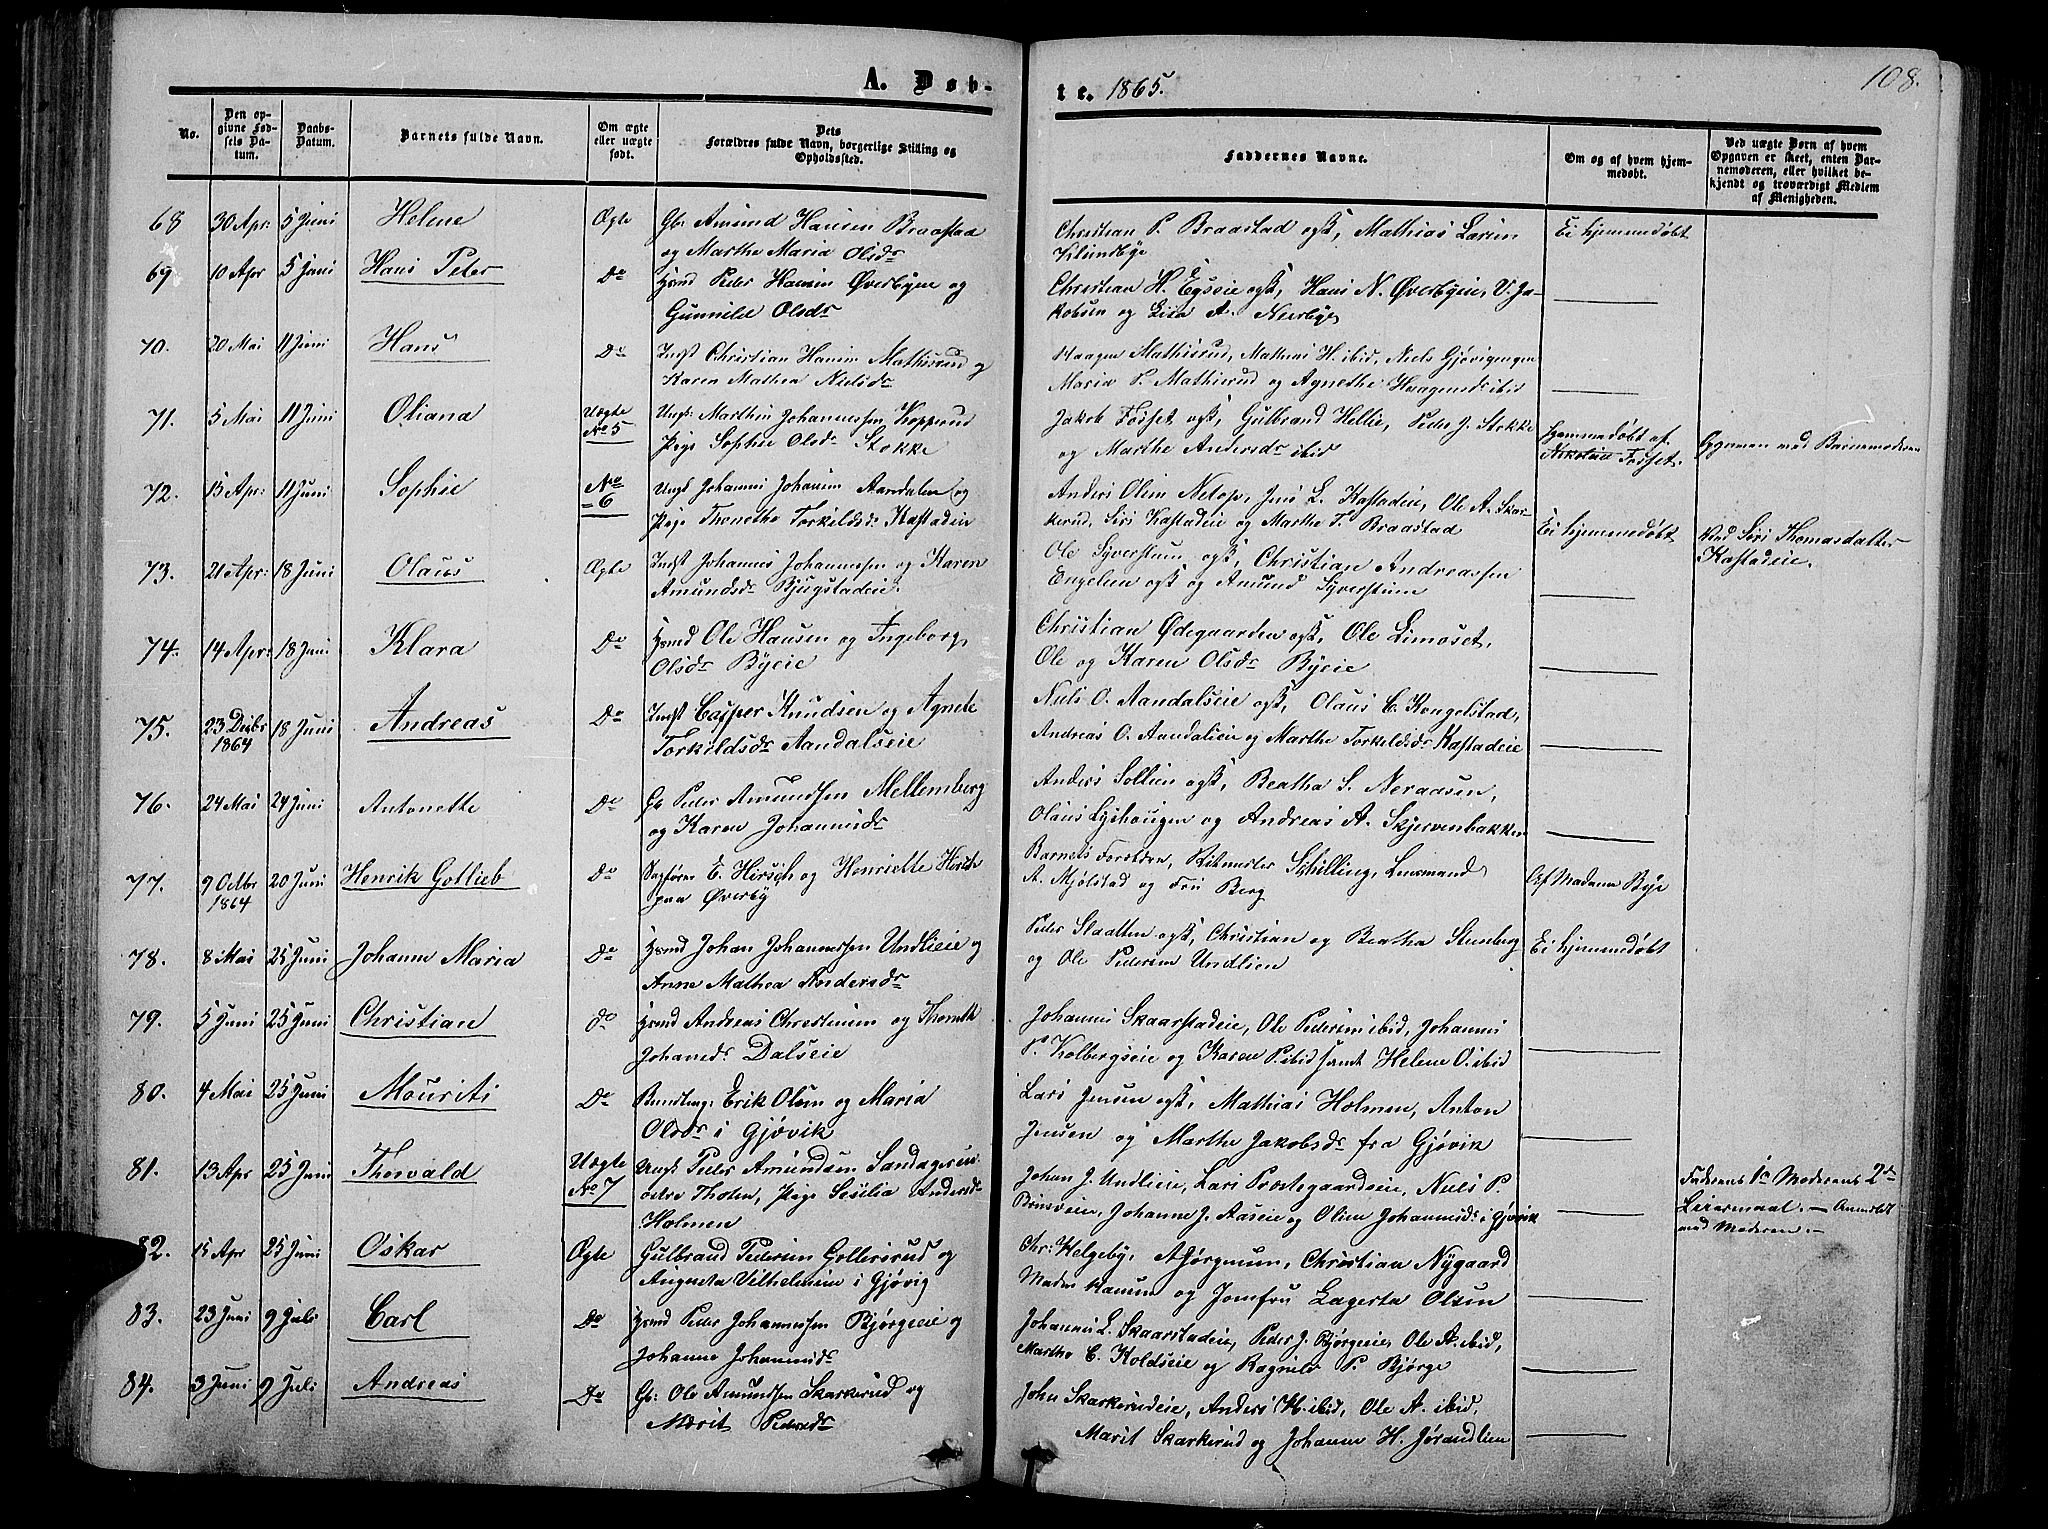 A. Døb-
te. 1865.
108.
No.
Den op-
givne Fød-
sels Da-
tum.
Daabs-
Datum.
Barnets fulde Navn.
Om ægte
eller uægte
født.
Dets
Forældres fulde Navn, borgerlige Stilling og
Opholdssted.
Faddernes Navne.
Om og af hvem hjem-
medøbt.
Ved uægte Børn af hvem
Opgaven er skeet, enten Bar-
nemoderen, eller hvilket be-
kjendt og troværdigt Medlem
af Menigheden.
68 30 Apr: 5 Juni Helene Ægte Gb: Amund Hansen Braastad
og Marthe Maria Olsdr
Christian P. Braastad og, Mathias Larsen
Ei hjemmedøbt
69. 10 Apr 5 Juni Hans Peter Do Peder Hansen Øverbyen og
Gunnild Olsdr
Christian H. Egseie, Hans N. Øverbyeie, V. Ja-
kobsen og Lisa A. Neerbye
70. 20 Mai 11 Juni Hans Do Indst Christian Hansen Mathisrud og
Karen Mathea Nielsdr
Haagen Mathisrud, Mathias H. ibid, Niels Gjøvigengen
Maria P. Mathisrud og Agnethe Haagensdr ibid
71. 5 Mai 11 Juni Oliana Uægte
No 5
Ungk: Marthin Johannessen Kopperud
Pige Sophie Olsdr Stokke
Jakob Fosset, Gulbrand Hellie, Peder J. Stokke
og Marthe Andersdr ibid
Hjemmedøbt af
Nikolai Fosset.
Opgaven med Barnemoderen
72. 15 Apr: 11 Juni Sophie No
6
Ungk Johannes Johansen Aandalen og
Pige Thonethe Torkildsdr Kastadeie
Anders Olsen Netop, Jens L. Kastadeie, Ole A. Skar-
kerud, Siri Kastadeie og Marthe T. Braastad
Ei hjemmedøbt
Ved Siri Thomasdatter
Kastadeie.
73. 21 Apr: 18 Juni Olaus Ægte Indst Johannes Johannessen og Karen
Amundsdr Bjugstadeie.
Ole Syverstuen, Christian Andreassen
Engelien og Amund Syverstuen
74. 14 Apr: 18 Juni Klara Do Ole Hansen og Ingeborg
Olsdr Byeie
Christian Ødegaarden, Ole Limoset,
Ole og Karen Olsdr Byeie
75. 23 Decbr
1864
18 Juni Andreas Do Indst Casper Knudsen og Agnete
Torkildsdr Aandalseie
Niels O. Aandalseie, Olaus C. Kongelstad,
Andreas O. Aandalseie og Marthe Torkeldsdr Kastadeie
76. 24 Mai 24 Juni Antonette Do Gb Peder Amundsen Mellemberg
og Karen Johannesdr
Anders Sollien, Beatha S. Neraasen,
Olaus Lyshaugen og Andreas A. Skjervenbakken
77. 9 Octbr
1864
20 Juni Henrik Gotlieb Do Sagfører E. Hirsch og Henriette Hirsch
paa Øverby
Barnets Forældre, Ritmester Schilling, Lensmand
A. Mjølstad og Fru Berg
Af Madame Bye
78. 8 Mai 25 Juni Johanne Maria Do Johan Johannessen Undlieie og
Anne Mathea Andersdr
Peder Slaatten, Christian og Beatha Stenberg
og Ole Pedersen Undlien
Ei hjemmedøbt
79. 5 Juni 25 Juni Christian do Andreas Christensen og Thorine
Johansdr Dalseie
Johannes Skaarstadeie, Ole Pedersen ibid, Johannes
P. Kolbergseie og Karen P. ibid samt Helene O. ibid
80. 4 Mai 25 Juni Mouriti Do Erik Olsen og Maria
Olsdr i Gjøvik
Lars Jensen, Mathias Holmen, Anton
Jensen og Marthe Jakobsdr fra Gjøvik
81. 13 Apr 25 Juni Thorvald Uægte
No 7
Ungk Peder Amundsen Sandagereie
østre Thoten, Pige Sesilia Andersdr
Holmen
Johan J. Undlieie, Lars Prestegaardseie, Niels P.
Johanne J. Aaseie og Oline Johannesdr i Gjøvik
Faderens 1te Moderens 2de
Leiermaal. - Anmeldt
med Moderen. -
82. 15 Apr 25 Juni Oskar Ægte Gulbrand Pedersen Gollersrud og
Augusta Vilhelmine i Gjøvig
Chr: Helgeby, A Jørgensen, Christian Nygaard
Madm Hansen og Jomfru Lagerta Olsen
83. 23 Juni 9 Juli Carl Do Peder Johannessen Bjørgeie og
Johanne Johannesdr
Johannes L. Skaarstadeie, Peder J. Bjørgeie, Ole A. ibid,
Marthe C. Koldseie og Ragnild P. Bjørge
84. 3 Juni 9 Juli Andreas Do Gb: Ole Amundsen Skarkerud og
Marit Pedersdr
John Skarkerudeie, Anders H. ibid, Ole A. ibid,
Marit Skarkerud og Johanne H. Jørandlien